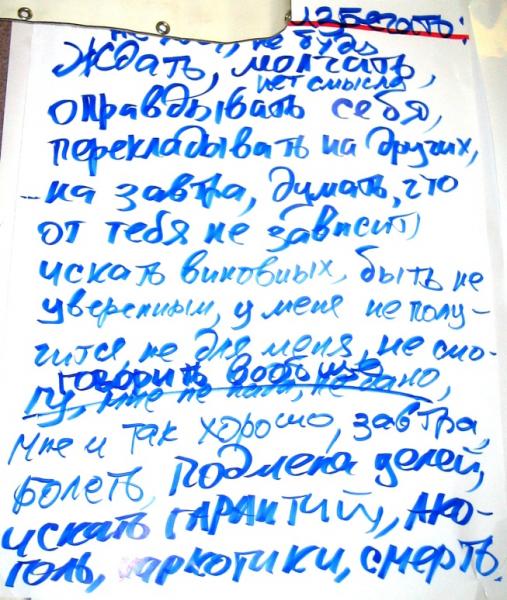 избегать:
не будь
Ждать, молчать,
нет смысла
оправдывать себя,
перекладывать на других,
на завтра, думать, что
от тебя не зависит,
искать виновных, быть не
уверенным, у меня не полу-
чится, не для меня, не смо-
говорить вообще
гу, мне не надо, не дано,
Мне и так хорошо, завтра,
болеть, подмена целей,
искать гарантий, алко-
голь, наркотики, смерть.